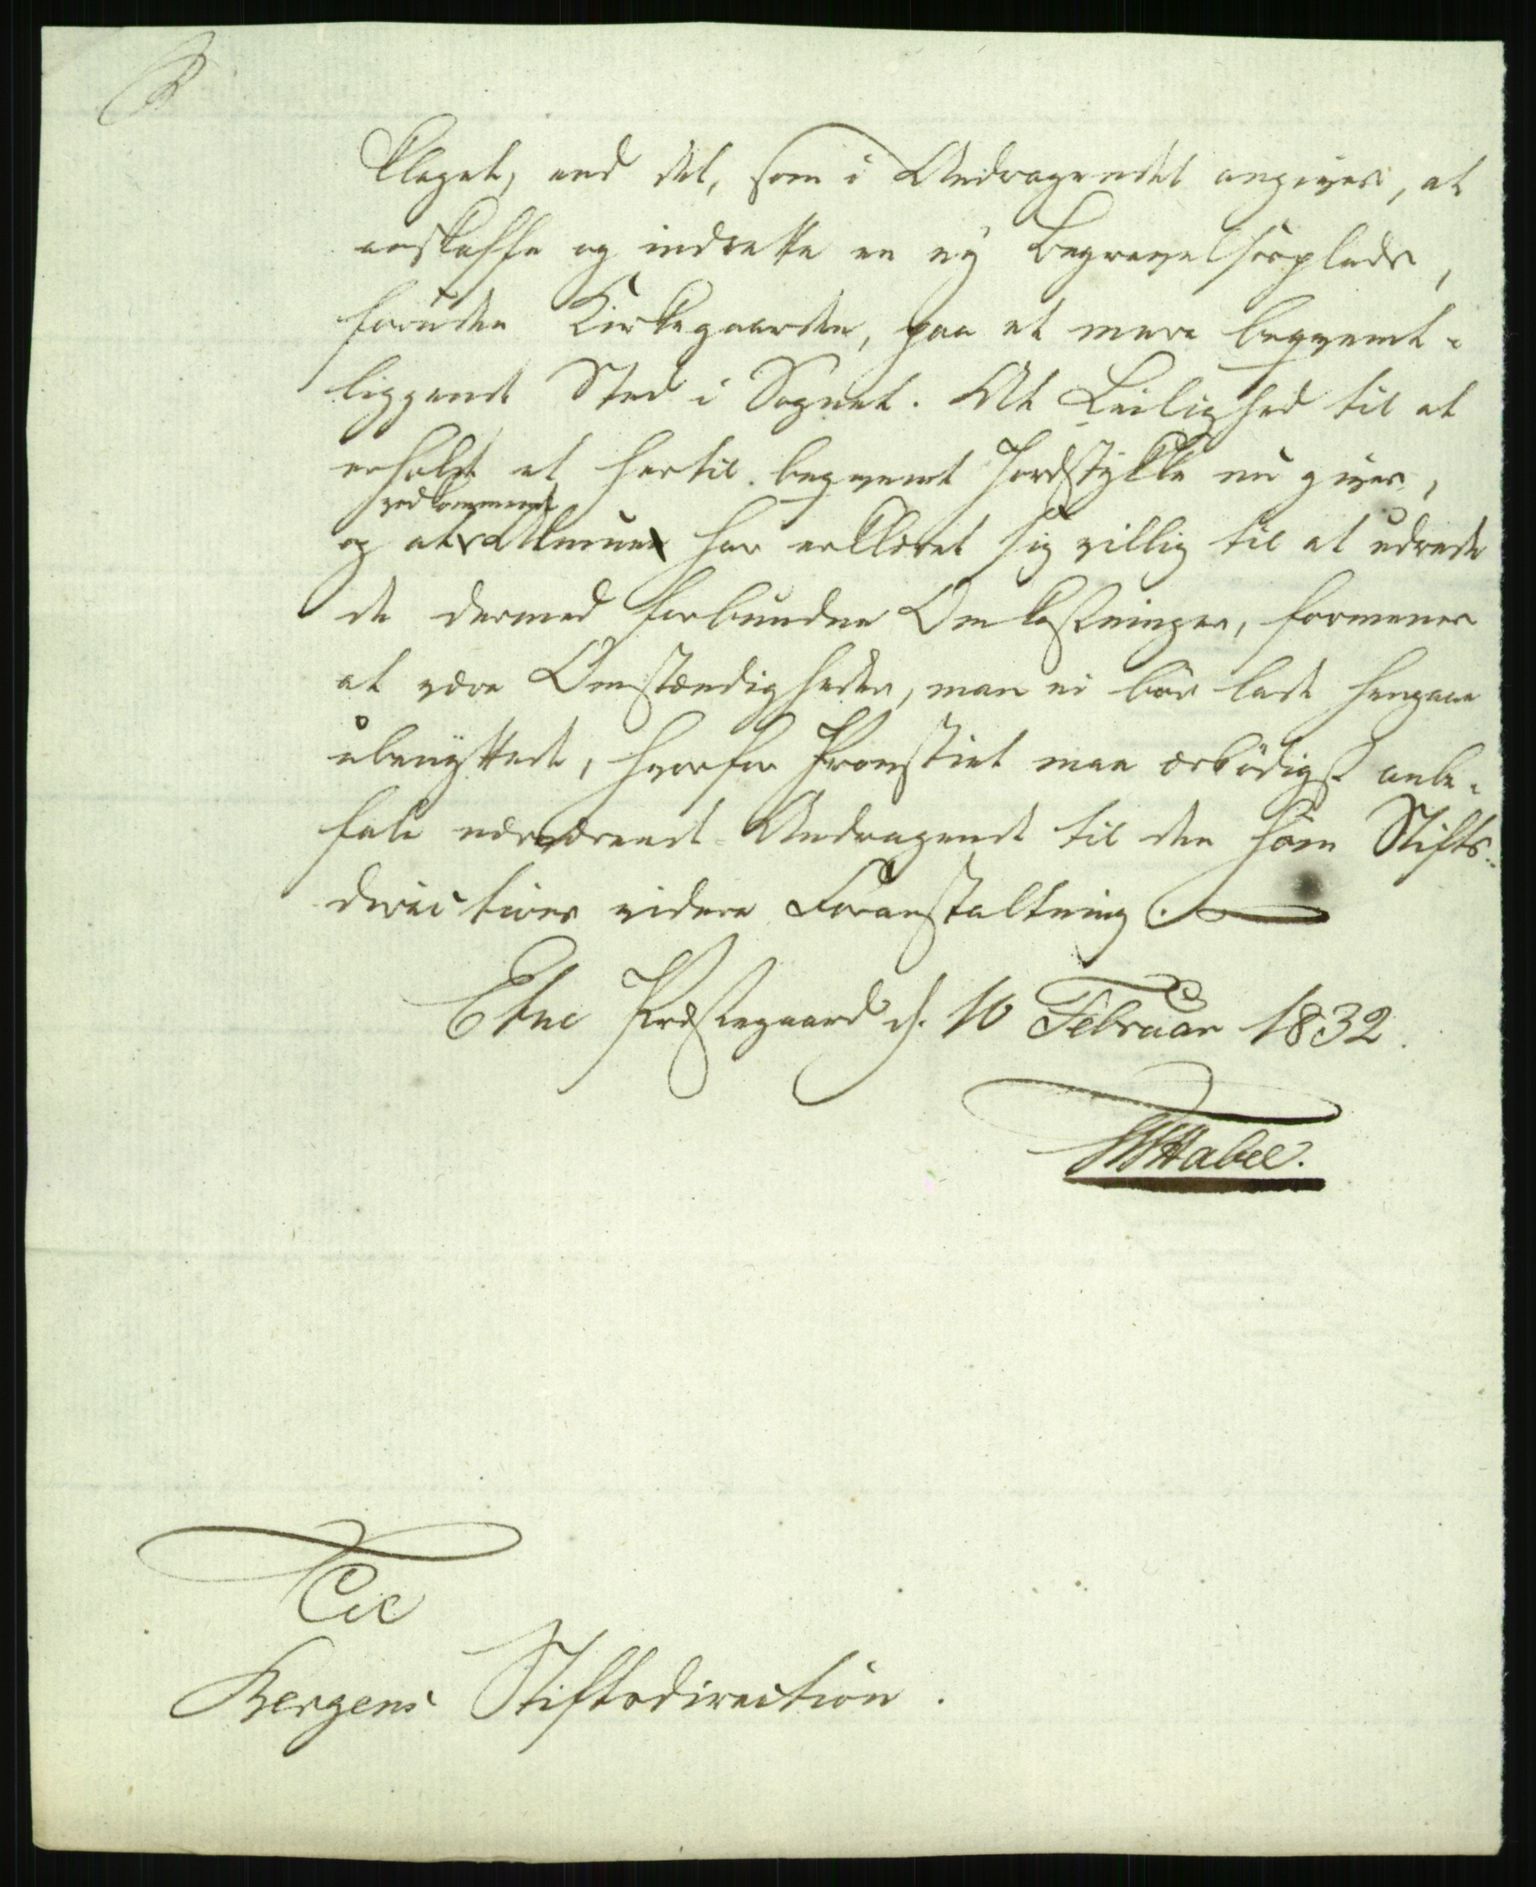 klaget, end det, som i Andragendet angives, at
anskaffe og indrette en ny Begravelsesplads,
foruden Kirkegaarden, paa et mere beqvemt
liggende Sted i Sognet. At Leilighed til at
erholde et hertil beqvemt Jordstykke nu gives,
vedkommende
og at Almue har erklæret sig villig til at udrede
de dermed forbundne Omkostninger, formenes
at være Omstændigheder, man ei bör lade hengaae
ubenyttede, hvorfor Provstiet maa ærbödigst anbe-
fale nærværende Andragende til den höie Stifts-
directions videre Foranstaltning.
Etne Præstegaard d. 10 Februar 1832.
Til
Bergens Stiftsdirection.